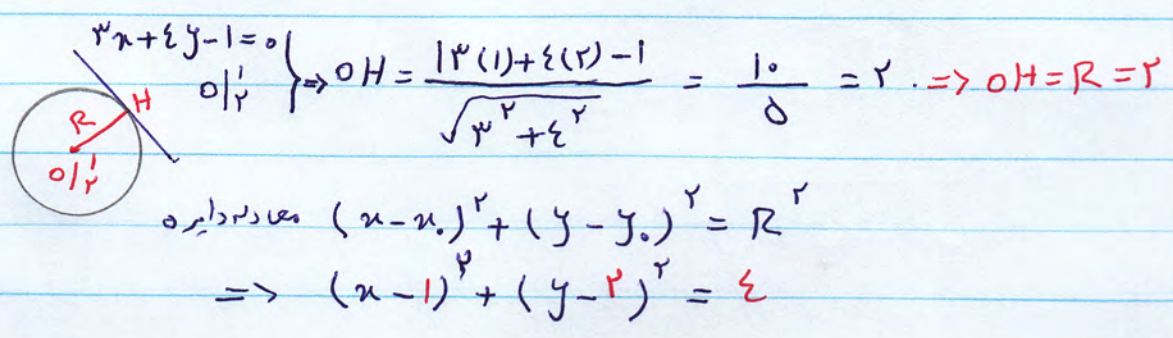 ۳x+٤y-۱=۰
O|۱ ۲ } => OH = |۳(۱)+٤(۲)-۱| / √۳²+٤² = ۱۰/۵ = ۲ . => OH=R=۲
R H
O|۱ ۲
معادله دایره (x-x₀)²+(y-y₀)²=R²
=> (x-۱)²+(y-۲)²=٤